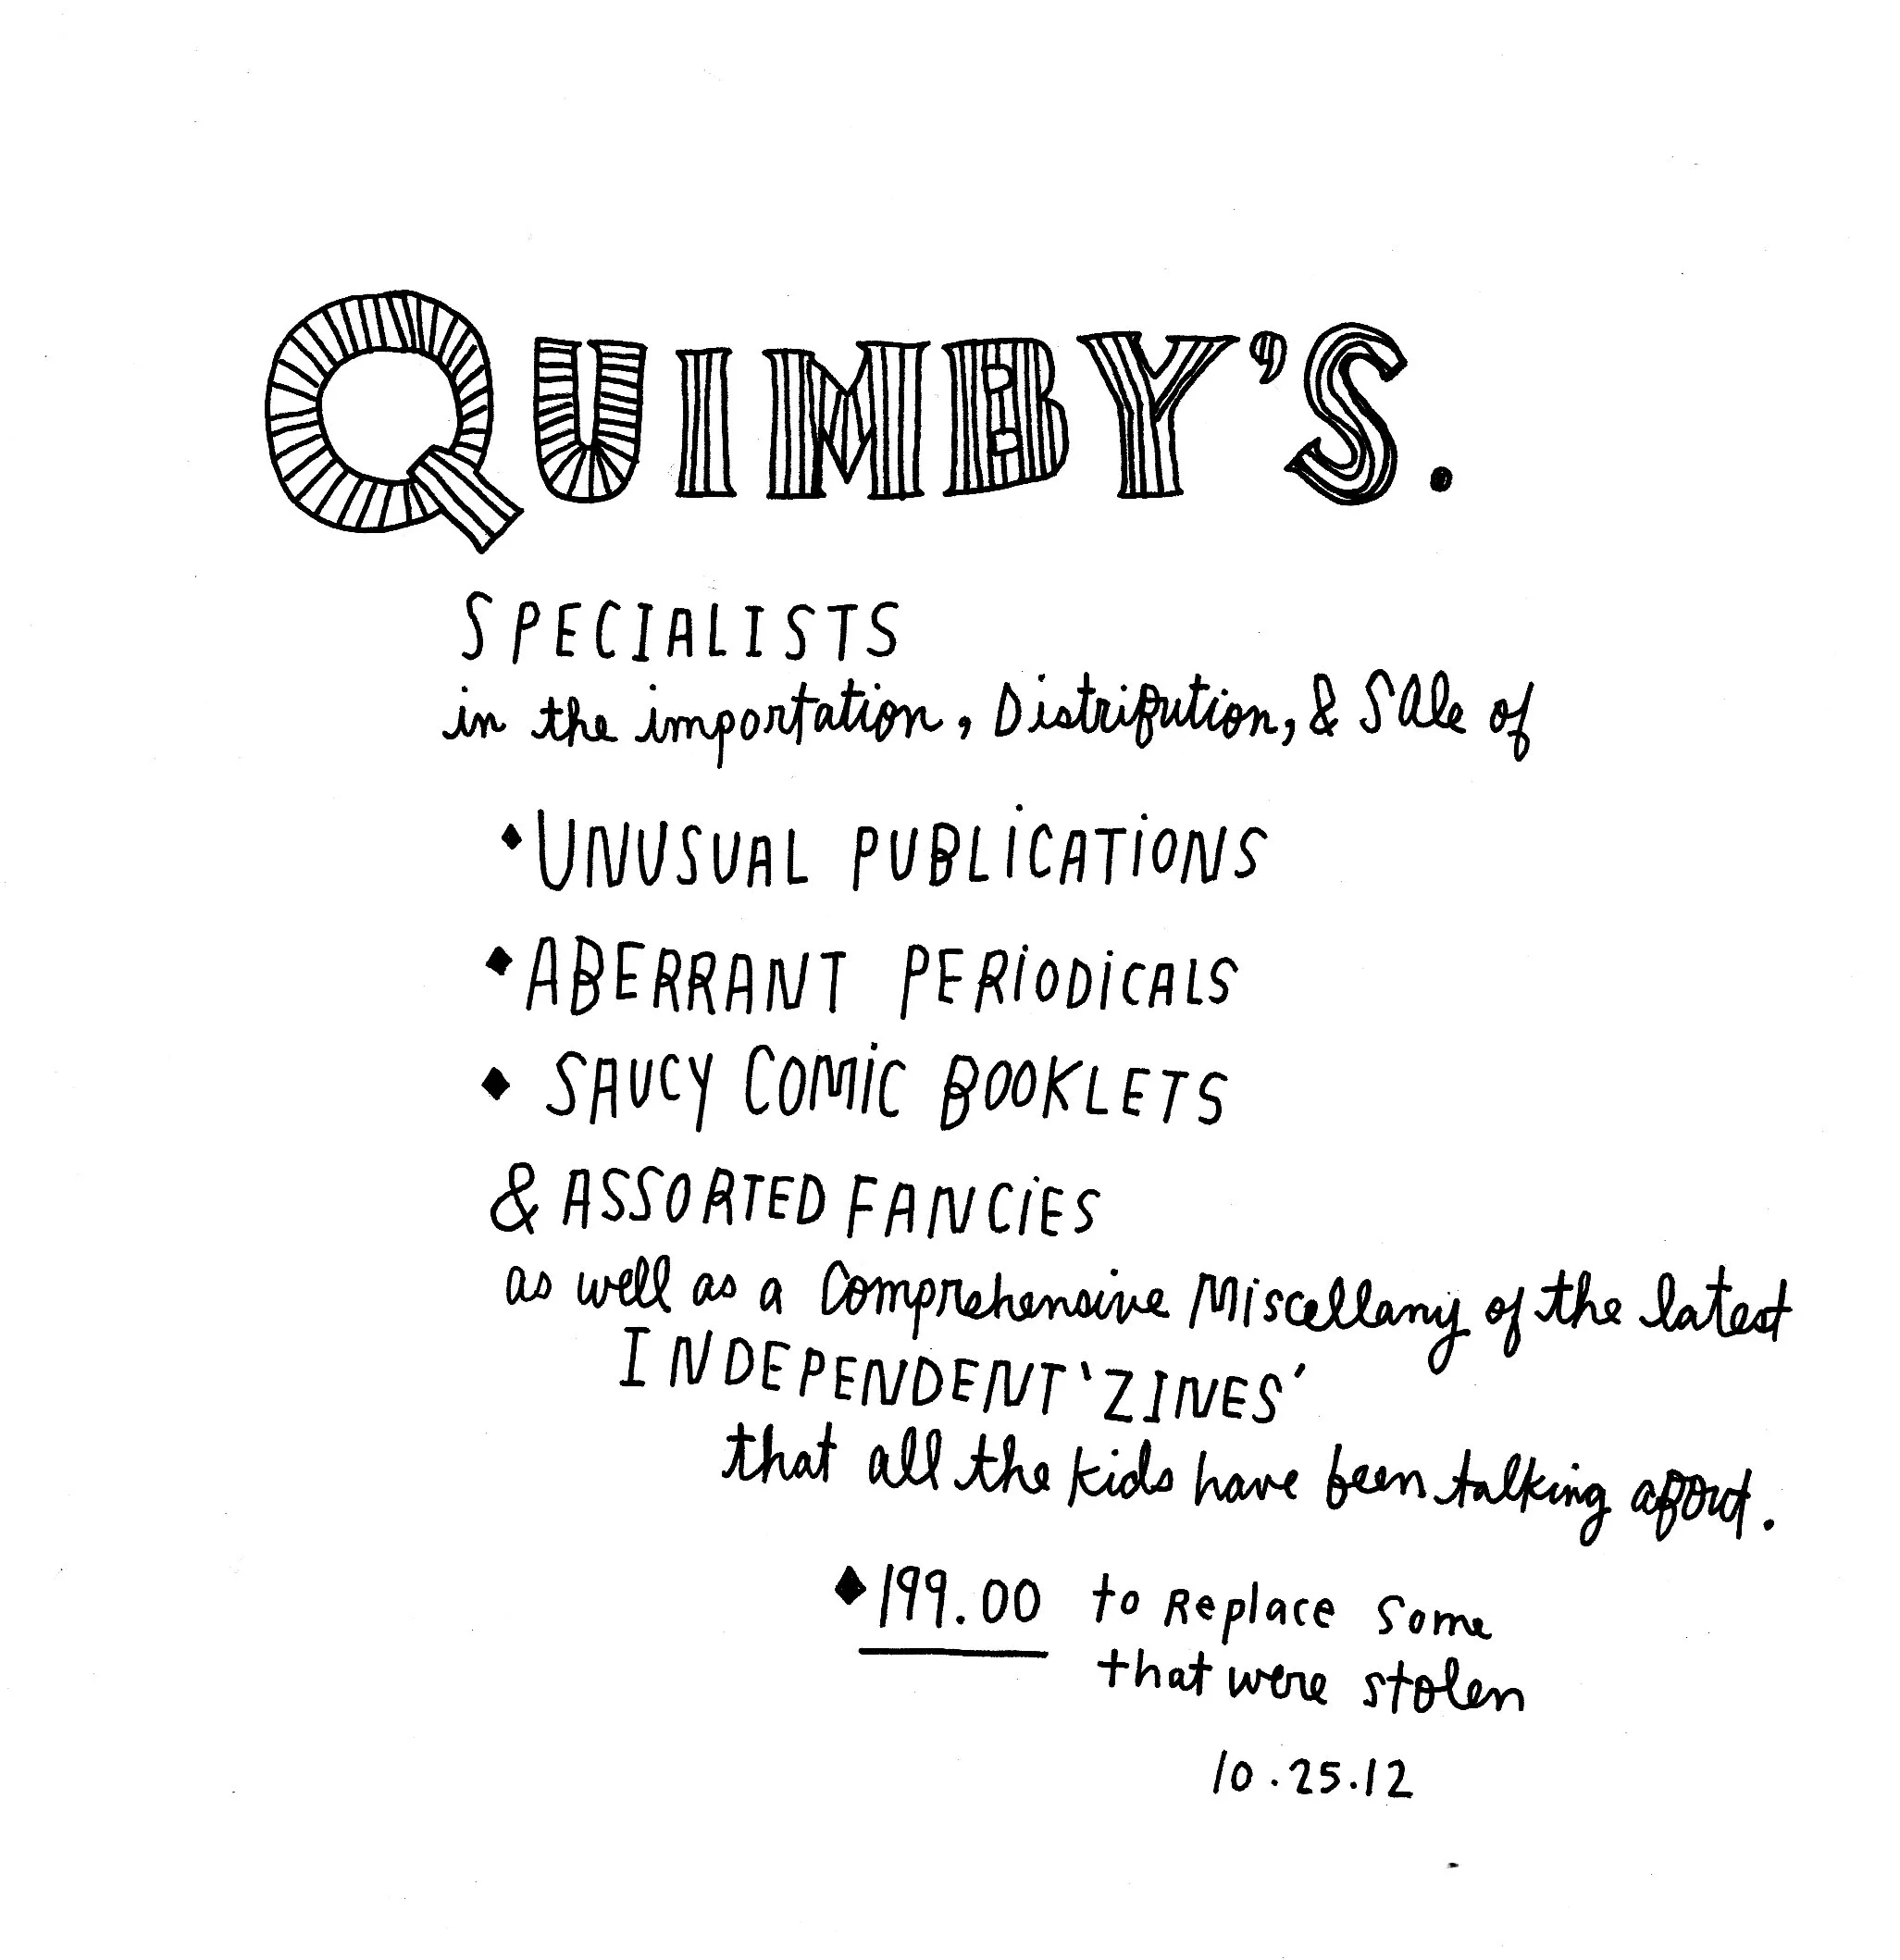 QUIMBY'S.
SPECIALISTS
in the importation, Distribution, & SAle of
♦ UNUSUAL PUBLiCATiONS
♦ ABERRANT PERiODiCALS
♦ SAUCY COMiC BOOKLETS
& ASSORTED FANCiES
as well as a Comprehensive Miscellany of the latest
INDEPENDENT 'ZINES'
that all the kids have been talking about.
♦ 199.00 to Replace Some
that were stolen
10.25.12